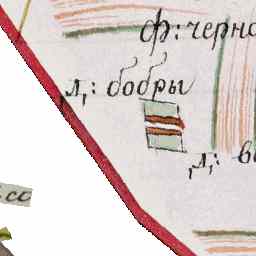 ф: черно
д: бобры
д: во
сс